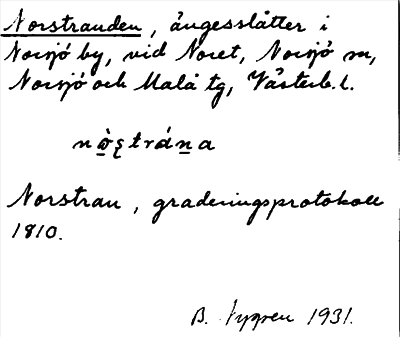 Norstranden, ängesslåtter i
Norsjö by, vid Noret, Norsjö sn,
Norsjö och Malå tg, Västerb. l.
Norstran, graderingsprotokoll
1810.
B. Nygren 1931.